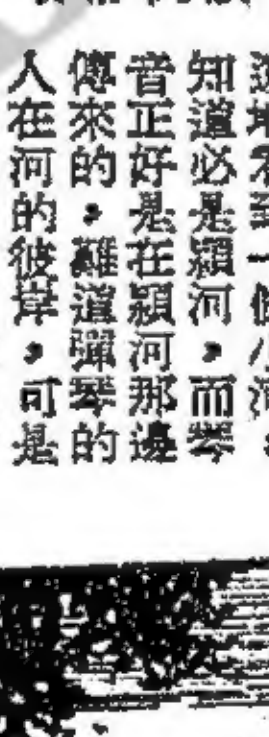 知道必是潁河，而琴
音正好是在潁河那邊
傳來的，難道彈琴的
人在河的彼岸，可是